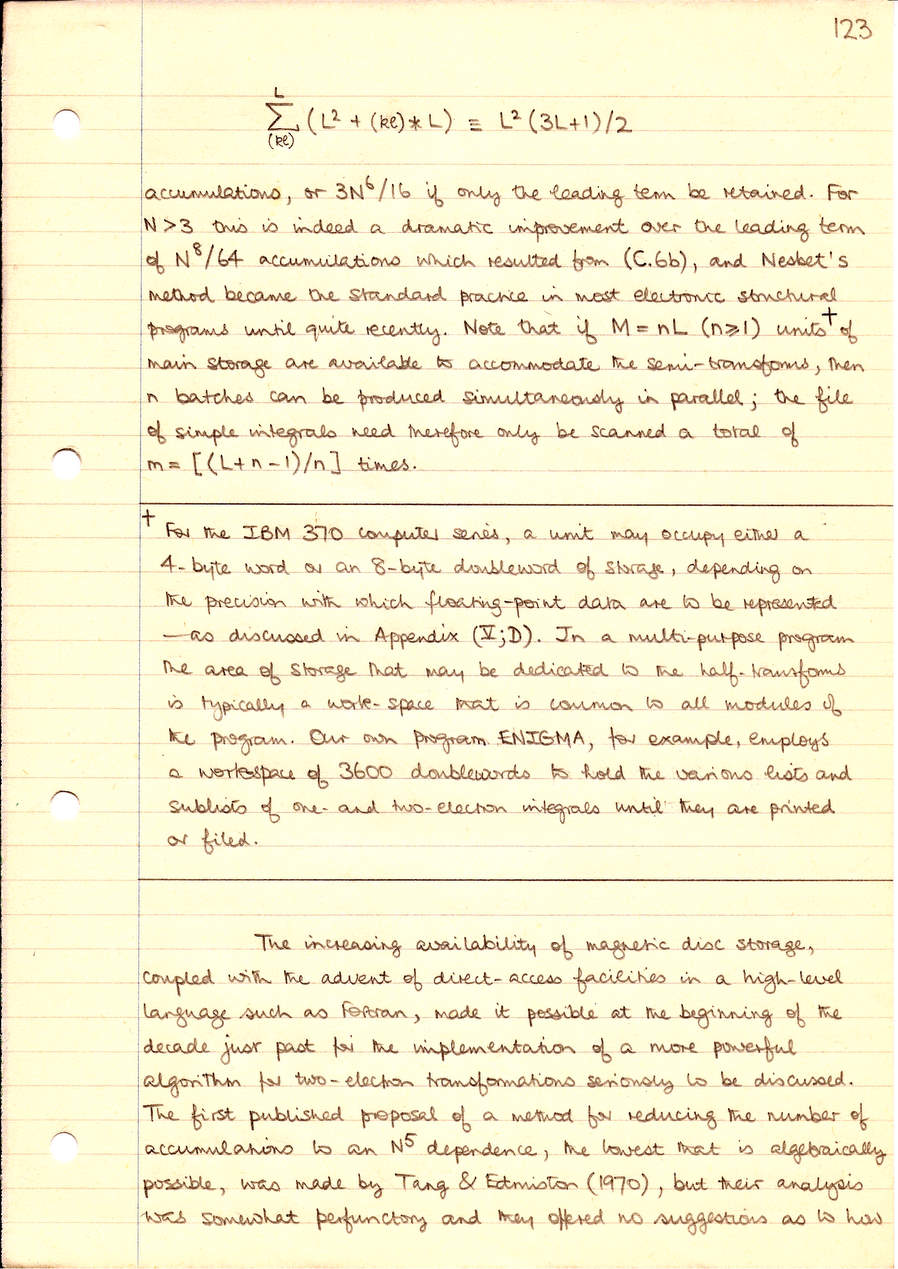 123
L
∑ (L² + (kl)*L) ≡ L²(3L+1)/2
(kl)
accumulations, or 3N⁶/16 if only the leading term be retained. For
N>3 this is indeed a dramatic improvement over the leading term
of N⁸/64 accumulations which resulted from (C.6b), and Nesbet's
method became the standard practice in most electronic structural
programs until quite recently. Note that if M = nL (n≥1) units† of
main storage are available to accommodate the semi-transforms, then
n batches can be produced simultaneously in parallel; the file
of simple integrals need therefore only be scanned a total of
m = [(L+n-1)/n] times.
† For the IBM 370 computer series, a unit may occupy either a
4-byte word or an 8-byte doubleword of storage, depending on
the precision with which floating-point data are to be represented
—as discussed in Appendix (V;D). In a multi-purpose program
the area of storage that may be dedicated to the half-transforms
is typically a work-space that is common to all modules of
the program. Our own program ENIGMA, for example, employs
a workspace of 3600 doublewords to hold the various lists and
sublists of one- and two-electron integrals until they are printed
or filed.
The increasing availability of magnetic disc storage,
coupled with the advent of direct-access facilities in a high-level
language such as Fortran, made it possible at the beginning of the
decade just past for the implementation of a more powerful
algorithm for two-electron transformations seriously to be discussed.
The first published proposal of a method for reducing the number of
accumulations to an N⁵ dependence, the lowest that is algebraically
possible, was made by Tang & Edmiston (1970), but their analysis
was somewhat perfunctory and they offered no suggestions as to how